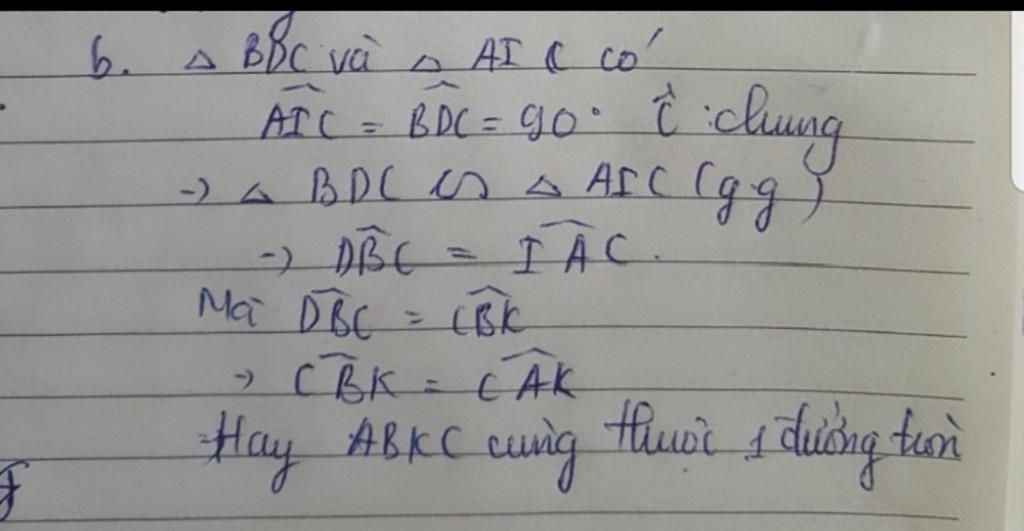 b. △ BDC và △ AIC có
AIC = BDC = 90° Ĉ : chung
→ △ BDC ∽ △ AIC (g.g)
→ DB̂C = IÂC.
Mà DB̂C = CB̂K
→ CB̂K = CÂK
Hay ABKC cùng thuộc 1 đường tròn